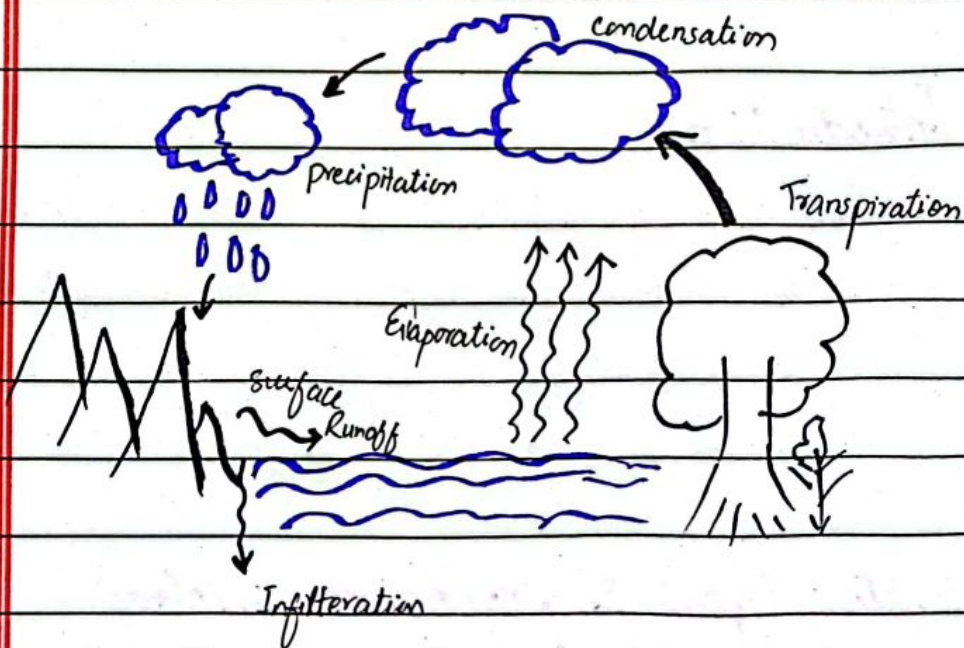 condensation
precipitation
Transpiration
Evaporation
surface
Runoff
Infilteration